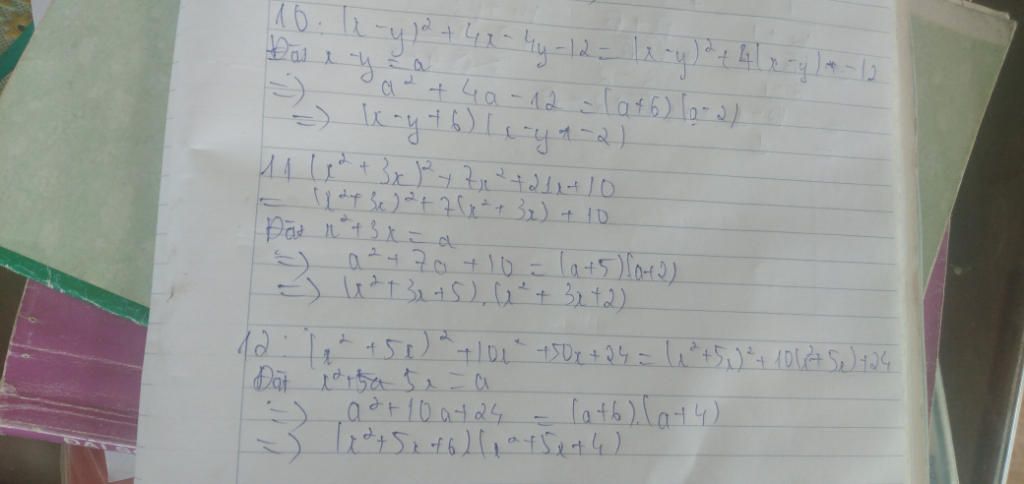 10: (x-y)² + 4x - 4y - 12 = (x-y)² + 4(x-y) - 12
Đặt x-y = a
=> a² + 4a - 12 = (a+6)(a-2)
=> (x-y+6)(x-y-2)
11 (x² + 3x)² + 7x² + 21x + 10
= (x²+3x)² + 7(x² + 3x) + 10
Đặt x²+3x = a
=> a² + 7a + 10 = (a+5)(a+2)
=> (x²+3x+5).(x² + 3x+2)
12: (x² + 5x)² + 10x² + 50x + 24 = (x²+5x)² + 10(x²+5x)+24
Đặt x²+5x = a
=> a²+10a+24 = (a+6).(a+4)
=> (x²+5x+6)(x²+5x+4)